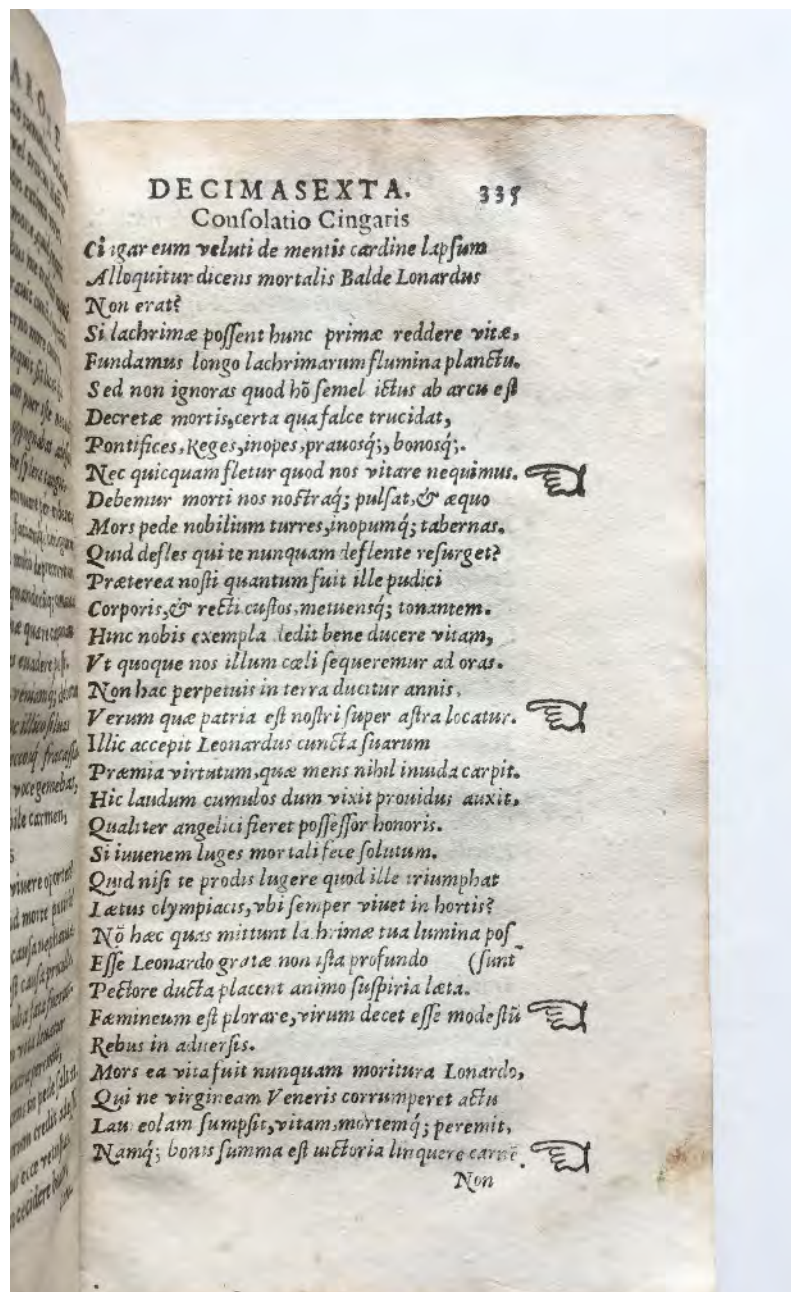 DECIMASEXTA. 335
Conſolatio Cingaris
Cingar eum veluti de mentis cardine lapſum
Alloquitur dicens mortalis Balde Lonardus
Non erat?
Si lachrimæ poſſent hunc primæ reddere vitæ,
Fundamus longo lachrimarum flumina planctu.
Sed non ignoras quod hõ ſemel ictus ab arcu eſt
Decretæ mortis, certa qua falce trucidat,
Pontifices, Reges, inopes, prauosq́;, bonosq́;.
Nec quicquam fletur quod nos vitare nequimus.
Debemur morti nos noſtraq́; pulſat, & æquo
Mors pede nobilium turres, inopumq́; tabernas.
Quid defles qui te nunquam deflente reſurget?
Præterea noſti quantum fuit ille pudici
Corporis, & recti cuſtos, metuensq́; tonantem.
Hinc nobis exempla dedit bene ducere vitam,
Vt quoque nos illum cœli ſequeremur ad oras.
Non hac perpetuis in terra ducitur annis,
Verum quæ patria eſt noſtri ſuper aſtra locatur.
Illic accepit Leonardus cuncta ſuarum
Præmia virtutum, quæ mens nihil inuida carpit.
Hic laudum cumulos dum vixit prouidus auxit,
Qualiter angelici fieret poſſeſſor honoris.
Si iuuenem luges mortali fece ſolutum.
Quid niſi te prodis lugere quod ille triumphat
Lætus olympiacis, vbi ſemper viuet in hortis?
Nõ hæc quas mittunt lachrimæ tua lumina poſ
Eſſe Leonardo gratæ non iſta profundo (ſunt
Pectore ducta placent animo ſuſpiria læta.
Fæmineum eſt plorare, virum decet eſſe modeſtũ
Rebus in aduerſis.
Mors ea vita fuit nunquam moritura Lonardo,
Qui ne virgineam Veneris corrumperet actu
Laureolam ſumpſit, vitam, mortemq́; peremit,
Namq́; bonis ſumma eſt uictoria linquere carnẽ.
Non